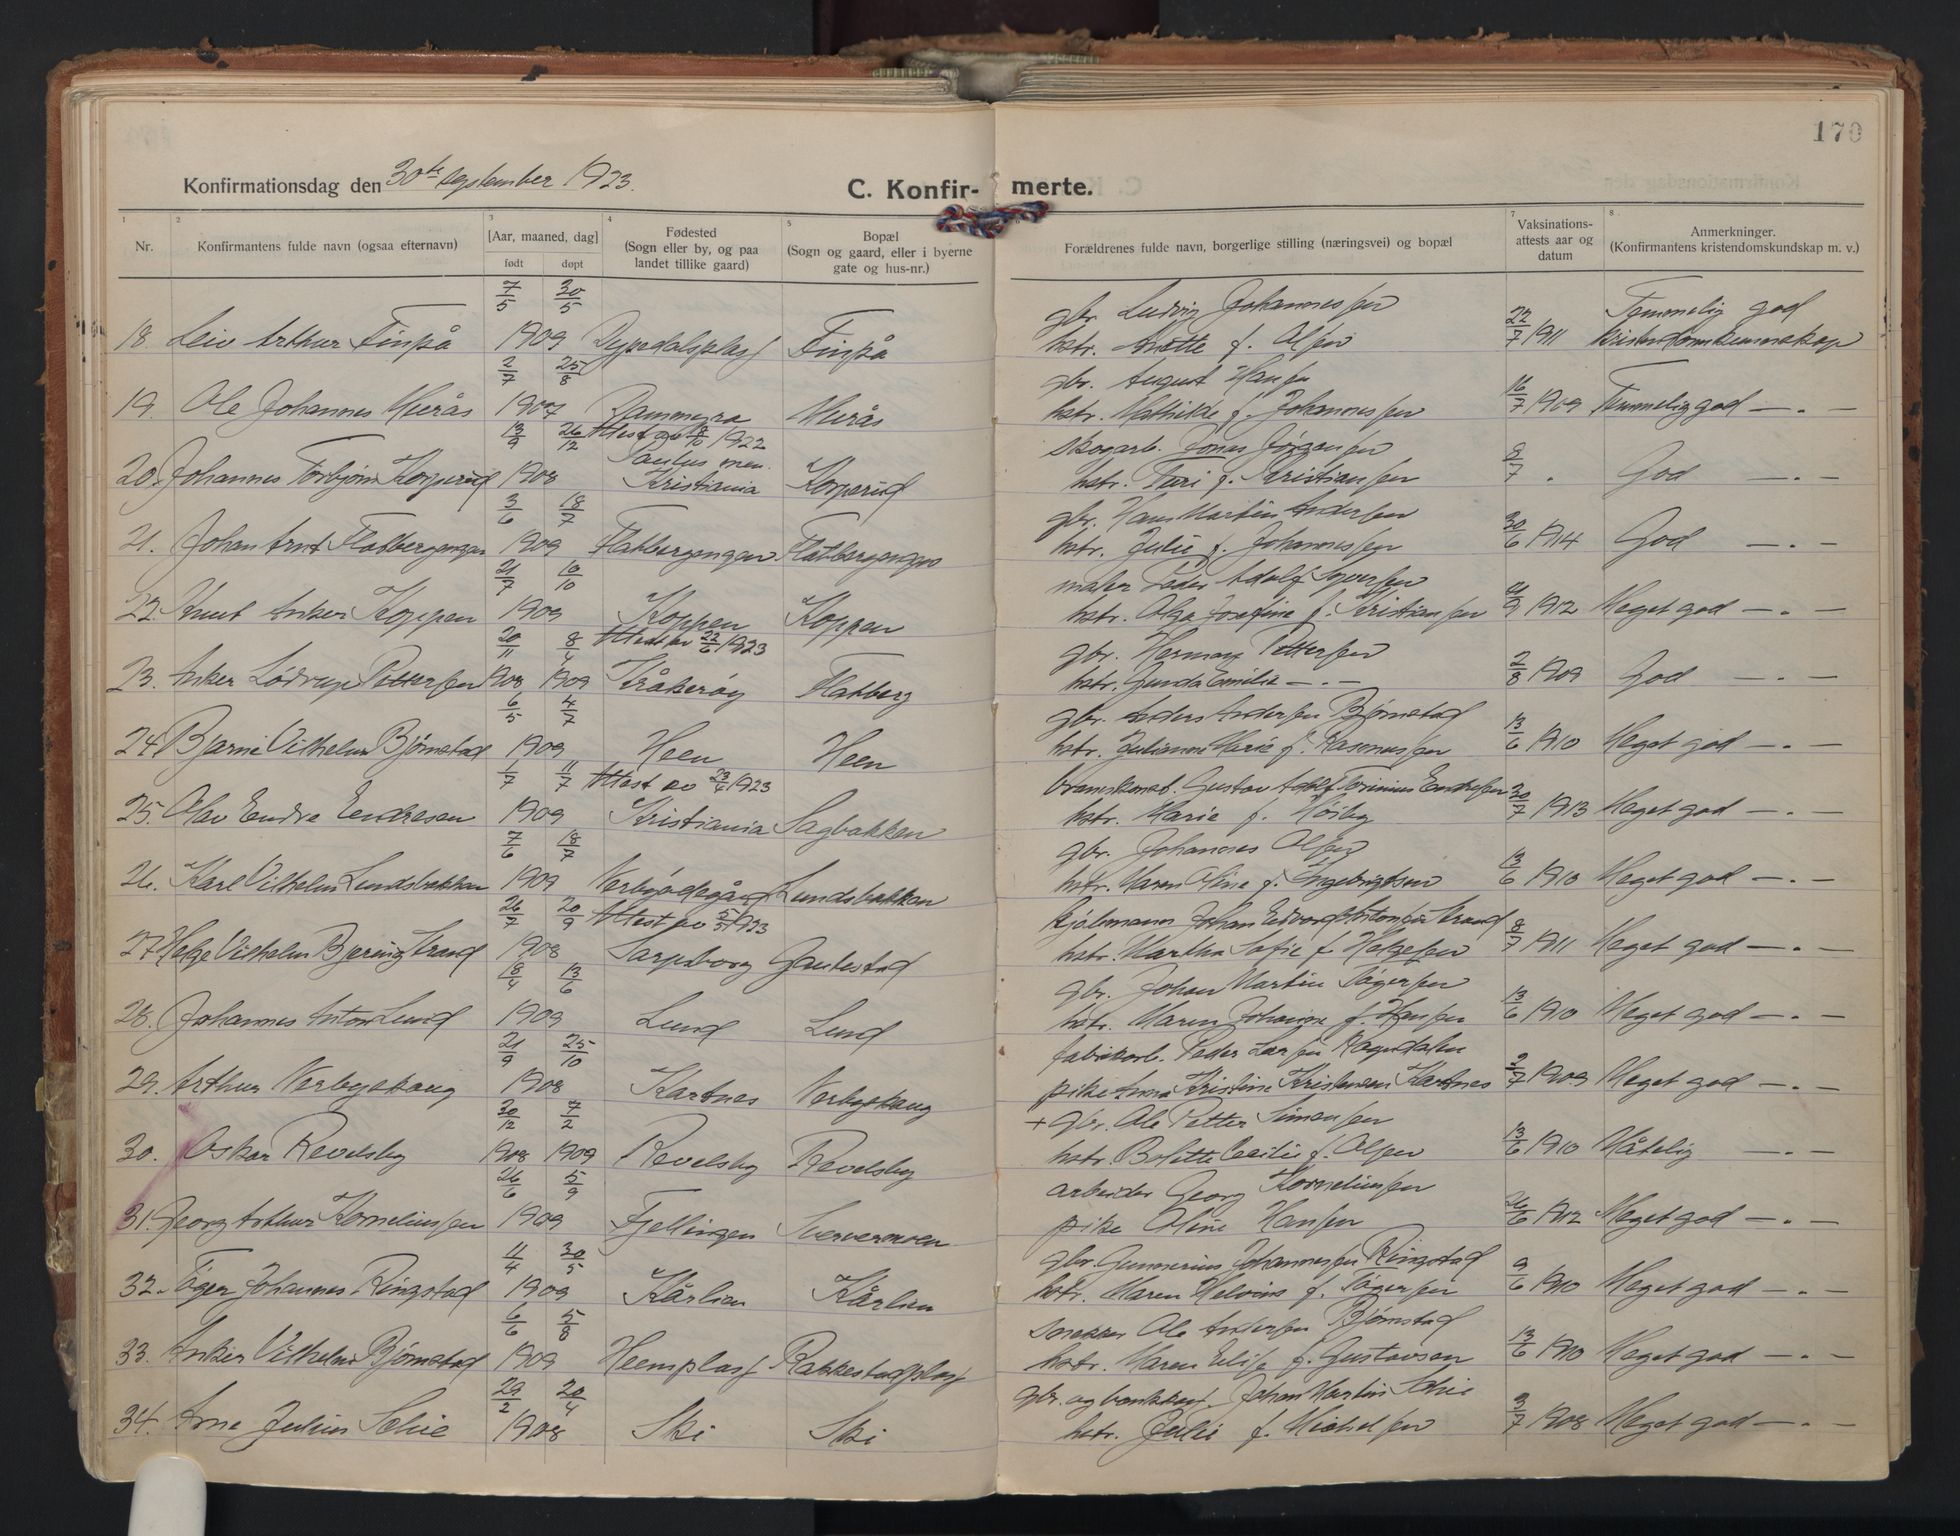 170
Konfirmationsdag den 30te september 1923.
C. Konfir- merte.
1 2 3 4 5 6 7 8
Nr. Konfirmantens fulde navn (ogsaa efternavn) [Aar, maaned, dag] født døpt Fødested (Sogn eller by, og paa landet tillike gaard) Bopæl (Sogn og gaard, eller i byerne gate og hus-nr.) Forældrenes fulde navn, borgerlige stilling (næringsvei) og bopæl Vaksinations-attests aar og datum Anmerkninger. (Konfirmantens kristendomskundskap m. v.)
7/5 30/5 gbr. Ludvig Johannessen Temmelig god
18. Leiv Arthur Finpå 1909 Dypedalsplass Finpå hstr. Anette f. Olsen 22/7 1911 kristendomskunnskap
2/7 25/8 gbr. August Hansen
19. Ole Johannes Huerås 1907 Dammyra Huerås hstr. Mathilde f. Johannessen 16/7 1909 Temmelig god — . —
13/9 26/12 Attest av 8/10 1922 skogarb. Jonas Jørgensen
20. Johannes Torbjørn Korperud 1908 Paulus men. Kristiania Korperud hstr. Turi f. Kristiansen 8/7 . God — . —
3/6 18/7 gbr. Hans Martin Andersen
21. Johan Arnt Flatbergengen 1909 Flatbergengen Flatbergengen hstr. Julie f. Johannessen 30/6 1914 God — . —
21/7 10/10 maler Peder Adolf Syversen
22. Knut Anker Koppen 1909 Koppen Koppen hstr. Olga Josefine f. Kristiansen 1912 Meget god — . —
20/11 8/4 Attest av 22/6 1923 gbr. Herman Pettersen
23. Anker Lødrup Pettersen 1908 1909 Kråkerøy Flatberg hstr. Gunda Emilie — . — 2/8 1909 God — . —
6/5 4/7 gbr. Anders Andersen Bjørnstad
24. Bjarne Vilhelm Bjørnstad 1909 Heen Heen hstr. Julianne Marie f. Rasmussen 13/6 1910 Meget god — . —
1/7 11/7 Attest av 23/4 1923 Gustav Adolf Endresen
25. Olav Endre Endresen 1909 Kristiania Sagbakken hstr. Marie f. Høiby 30/7 1913 Meget god — . —
7/6 18/7 gbr. Johannes Olsen
26. Karl Vilhelm Lundsbakken 1909 Lundsbakken hstr. Maren Oline f. Engebrigtsen 13/6 1910 Meget god — . —
26/7 20/9 Attest av 5/5 1923 Johan Edvard Antonsen Strand
27. Helge Vilhelm Bjering Strand 1908 Sarpsborg Gautestad hstr. Martha Sofie f. Helgesen 8/7 1911 Meget god — . —
18/4 13/6 gbr. Johan Martin Tågersen
28. Johannes Anton Lund 1909 Lund Lund hstr. Maren Johanne f. Hansen 13/6 1910 Meget god — . —
21/9 25/10 fabrikarb. Peder Larsen
29. Arthur Verbyskaug 1908 Kartnes Verbyskaug pike Anna Kristine Kristensen Kartnes 2/7 1909 Meget god — . —
30/12 7/2 + gbr. Ole Petter Simensen
30. Oskar Revelsby 1908 1909 Revelsby Revelsby hstr. Bolette Cecilie f. Olsen 13/6 1910 Måtelig — . —
26/6 5/9 arbeider Georg Korneliussen
31. Georg Arthur Korneliussen 1909 Fjellingen Sververmoen pike Oline Hansen 26/6 1912 Meget god — . —
11/4 30/5 gbr. Gunnerius Johannessen Ringstad
32. Tåger Johannes Ringstad 1909 Kårlien Kårlien hstr. Maren Helvine f. Tågersen 9/6 1910 Meget god — . —
6/6 5/8 snekker Ole Andersen Bjørnstad
33. Anker Vilhelm Bjørnstad 1909 Heenplass Rakkestadplass hstr. Maren Elise f. Gustavsen 13/6 1910 Meget god — . —
29/2 20/4 gbr. og bankkass. Johan Martin Schie
34. Arne Julius Schie 1908 Ski Ski hstr. Julie f. Michelsen 3/7 1908 Meget god — . —